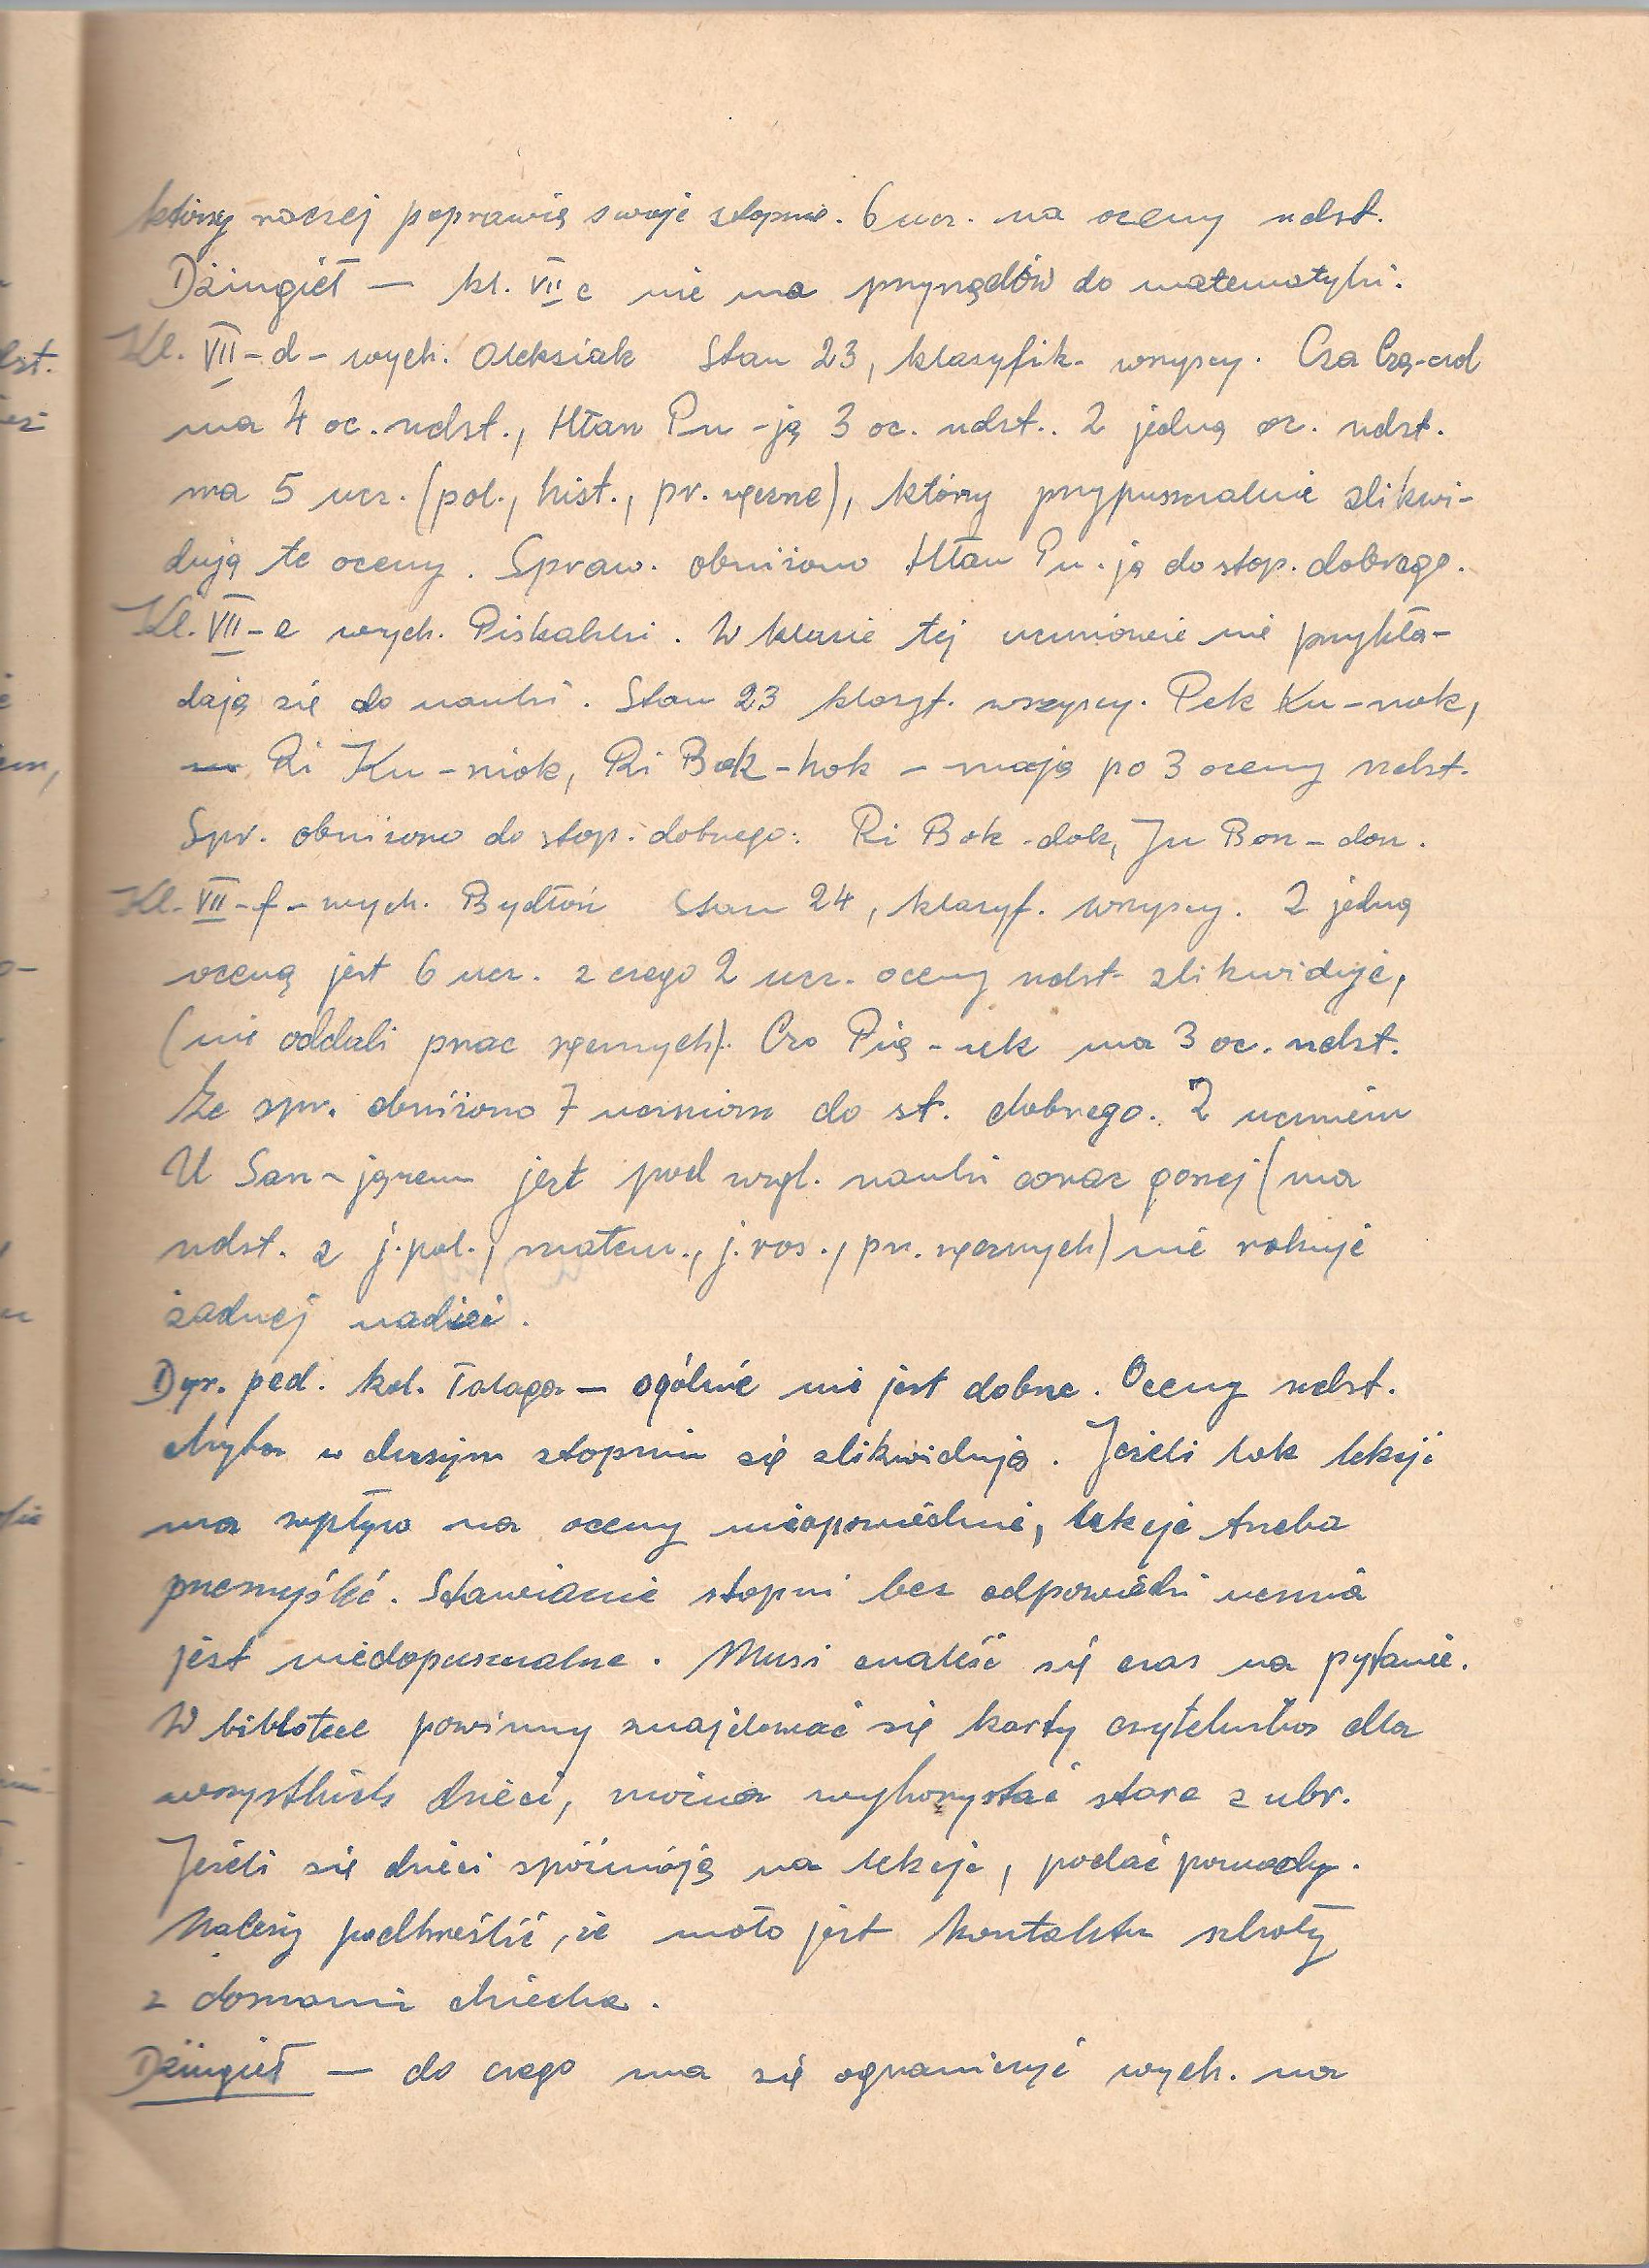 którzy raczej poprawią swoje stopnie. 6 ucz. ma oceny ndst.
Dżingieł — kl. VII c nie ma przyrządów do matematyki.
Kl. VII-d- wych. Oleksiak Stan 23, klasyfik. wszyscy. Cza Czą-czd
ma 4 oc. ndst., Htan Pu-ją 3 oc. ndst.. Z jedną oc. ndst.
ma 5 ucz. (pol., hist., pr. ręczne), którzy przypuszczalnie zlikwi-
dują te oceny. Spraw. obniżono Htan Pu-ją do stop. dobrego.
Kl. VII-e wych. Piskalski. W klasie tej uczniowie nie przykła-
dają się do nauki. Stan 23 klasyf. wszyscy. Pek Ku-nok,
Ri Ku-niok, Ri Bok-hok — mają po 3 oceny ndst.
Spr. obniżono do stop. dobrego: Ri Bok-dok, Ju Bon-don.
Kl. VII-f- wych. Bydłoń Stan 24, klasyf. wszyscy. Z jedną
oceną jest 6 ucz. z czego 2 ucz. oceny ndst zlikwiduje,
(nie oddali prac ręcznych). Czo Pią-uk ma 3 oc. ndst.
Ze spr. obniżono 7 uczniom do st. dobrego. Z uczniem
U San-jązem jest pod wzgl. nauki coraz gorzej (ma
ndst. z j. pol., matem., j. ros., pr. ręcznych) nie rokuje
żadnej nadziei.
Dyr. ped. kol. Talaga — ogólnie nie jest dobrze. Oceny ndst.
chyba w dużym stopniu się zlikwidują. Jeżeli tok lekcji
ma wpływ na oceny nieodpowiednie, lekcje trzeba
przemyśleć. Stawianie stopni bez odpowiedzi ucznia
jest niedopuszczalne. Musi znaleść się czas na pytanie.
W bibliotece powinny znajdować się karty czytelnika dla
wszystkich dzieci, można wykorzystać stare z ubr.
Jeżeli się dzieci spóźniają na lekcje, podać powody.
Należy podkreślić, że mało jest kontaktu szkoły
z domami dziecka.
Dżingieł — do czego ma się ograniczyć wych. na